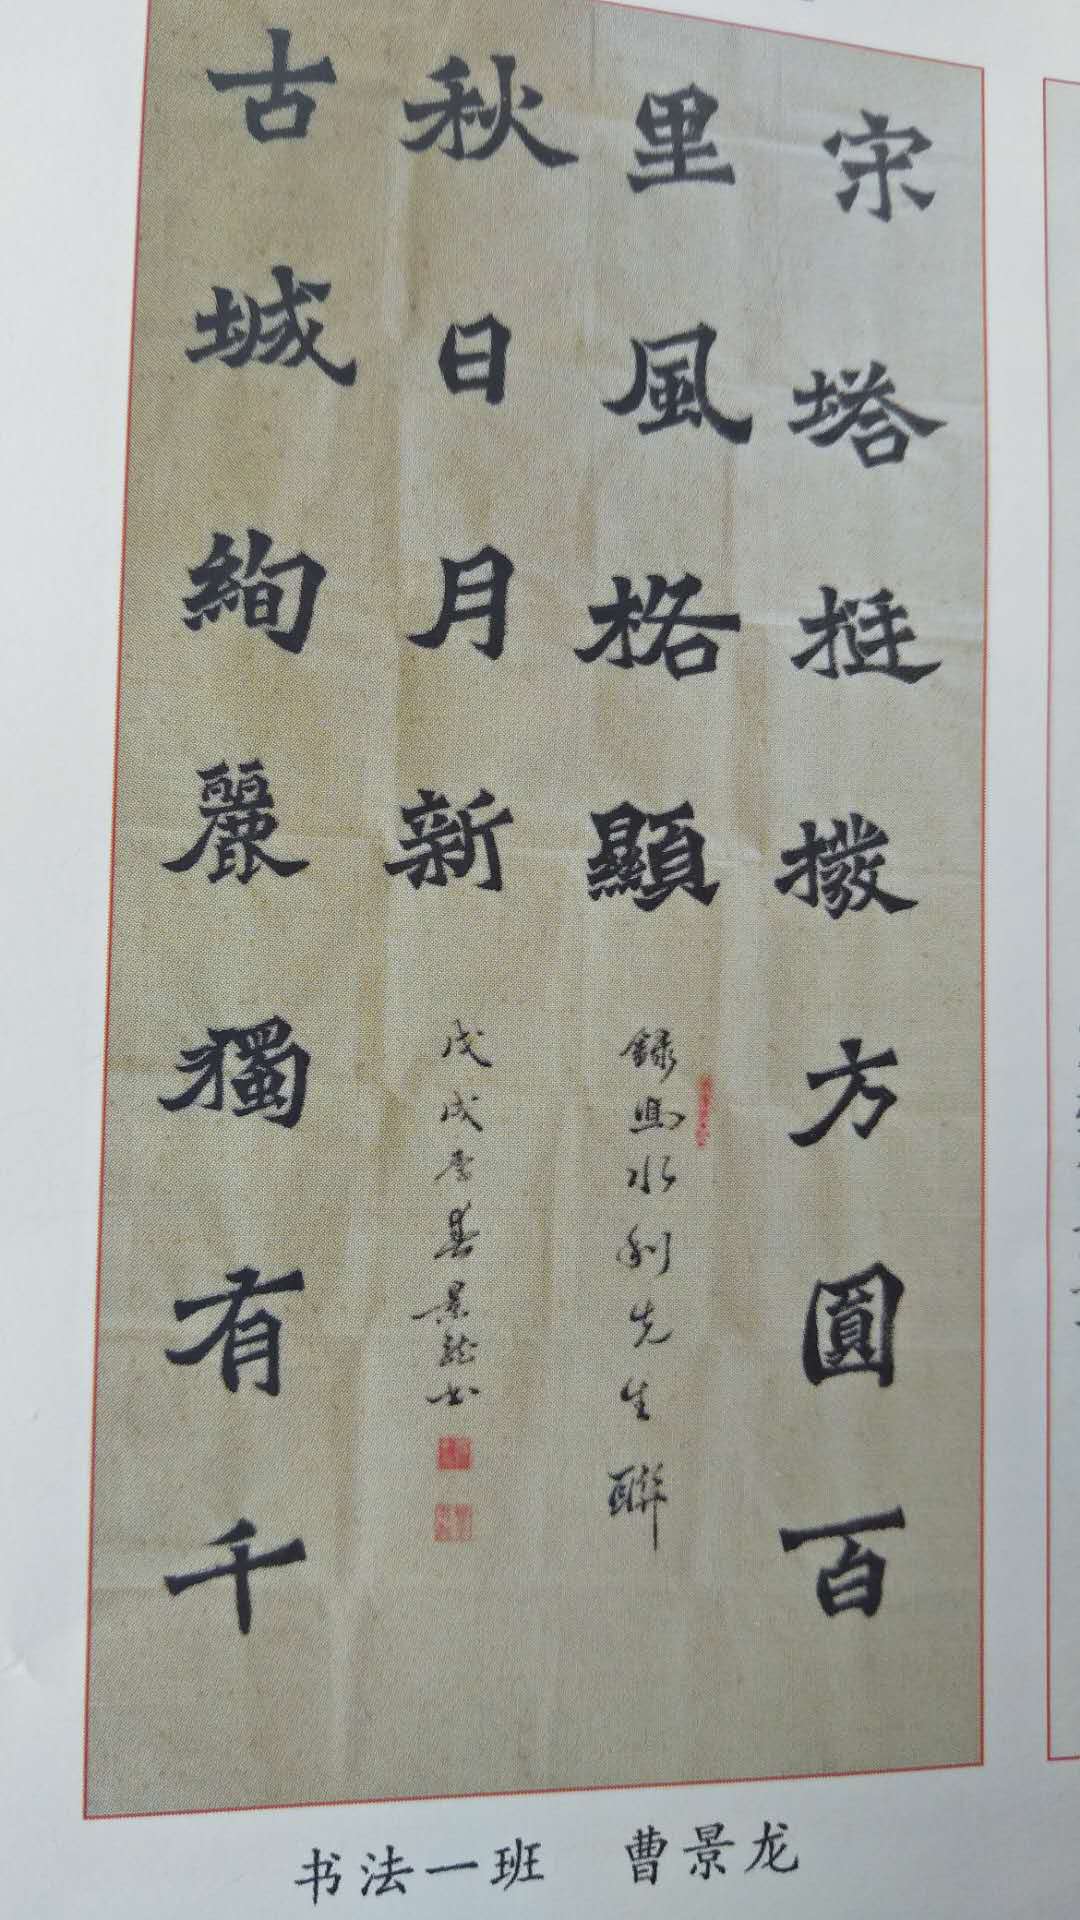 宋塔挺撥方圓百
里風格顯
古城絢麗獨有千
秋日月新
錄馬水利先生聯
戊戌季春景龍书
书法一班 曹景龙